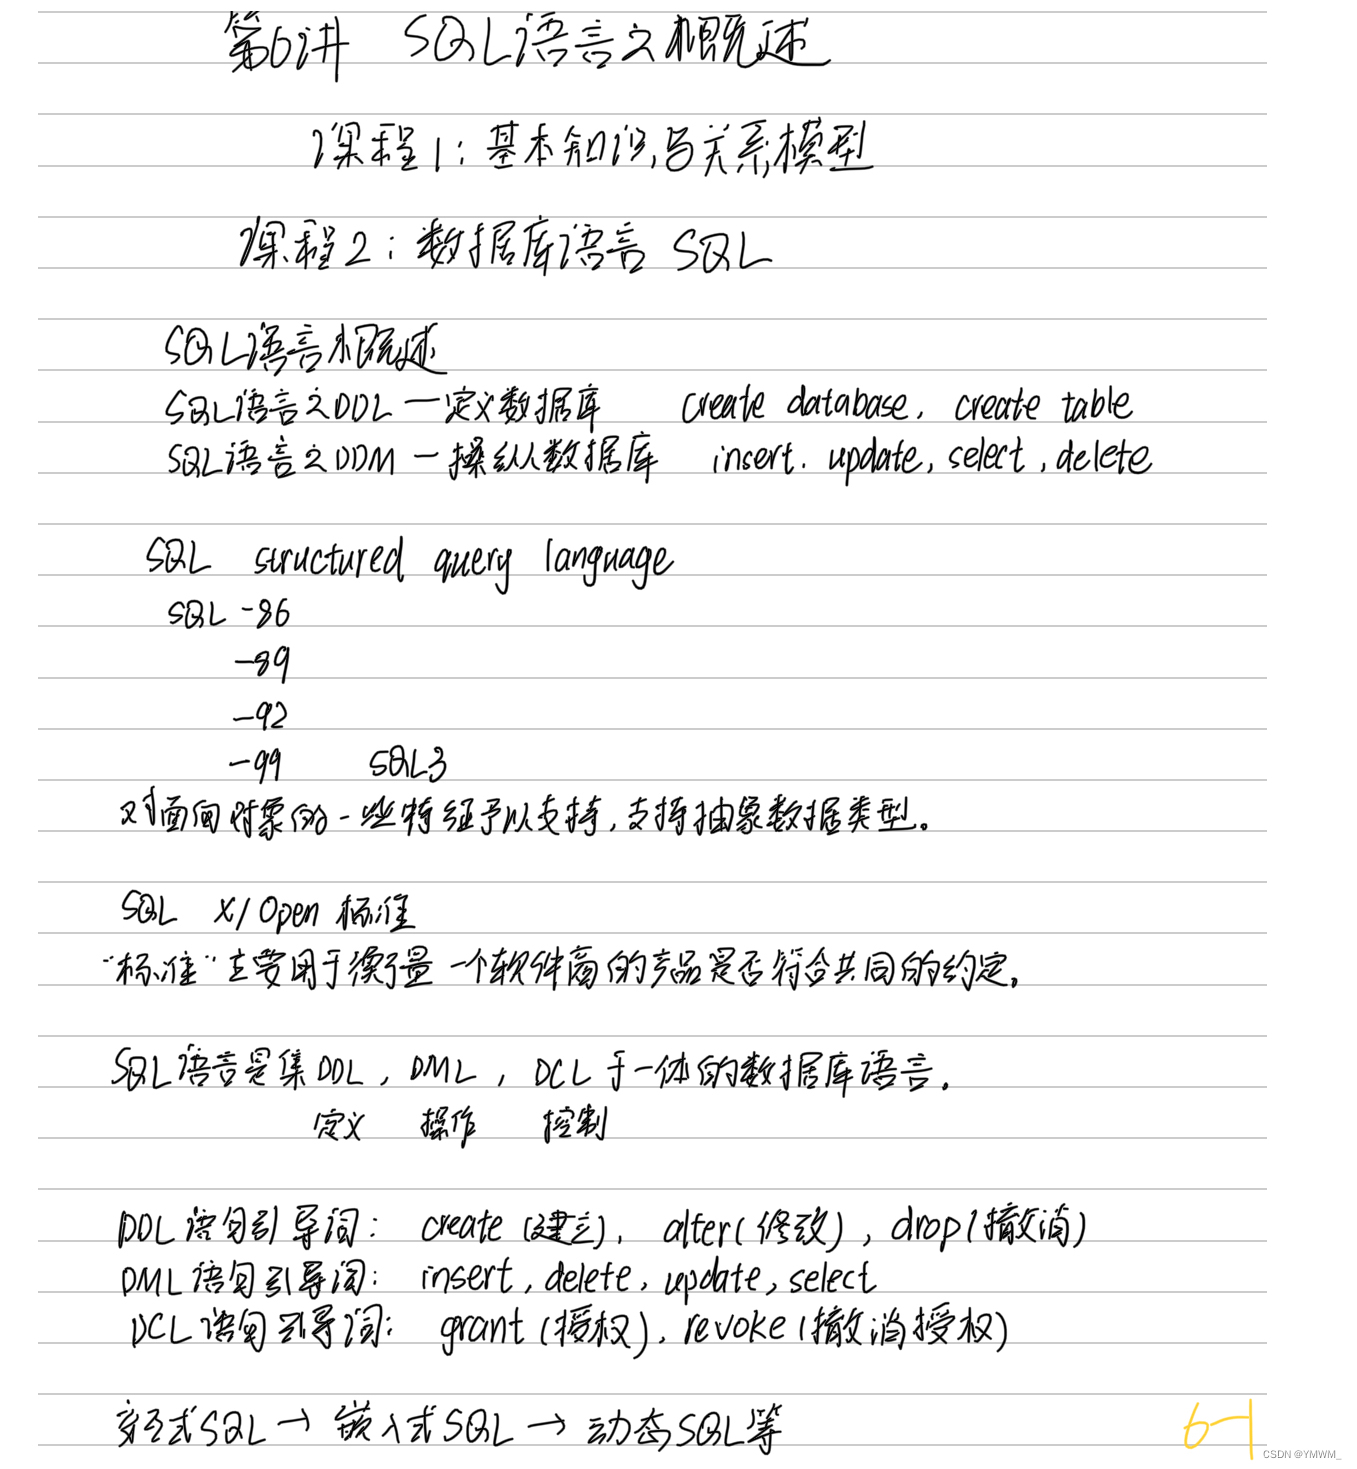 第6讲 SQL语言之概述
课程1:基本知识与关系模型
课程2:数据库语言 SQL
SQL语言概述
SQL语言之DDL—定义数据库 create database, create table
SQL语言之DDM—操纵数据库 insert. update, select, delete
SQL structured query language
SQL -86
-89
-92
-99 SQL3
对面向对象的一些特征予以支持,支持抽象数据类型。
SQL X/Open 标准
“标准”主要用于衡量一个软件商的产品是否符合共同的约定。
SQL语言是集DDL, DML, DCL于一体的数据库语言。
定义 操作 控制
DDL语句引导词: create(建立), alter(修改), drop(撤消)
DML语句引导词: insert, delete, update, select
DCL语句引导词: grant(授权), revoke(撤消授权)
交互式SQL→嵌入式SQL→动态SQL等
6-1
CSDN @YMWM_